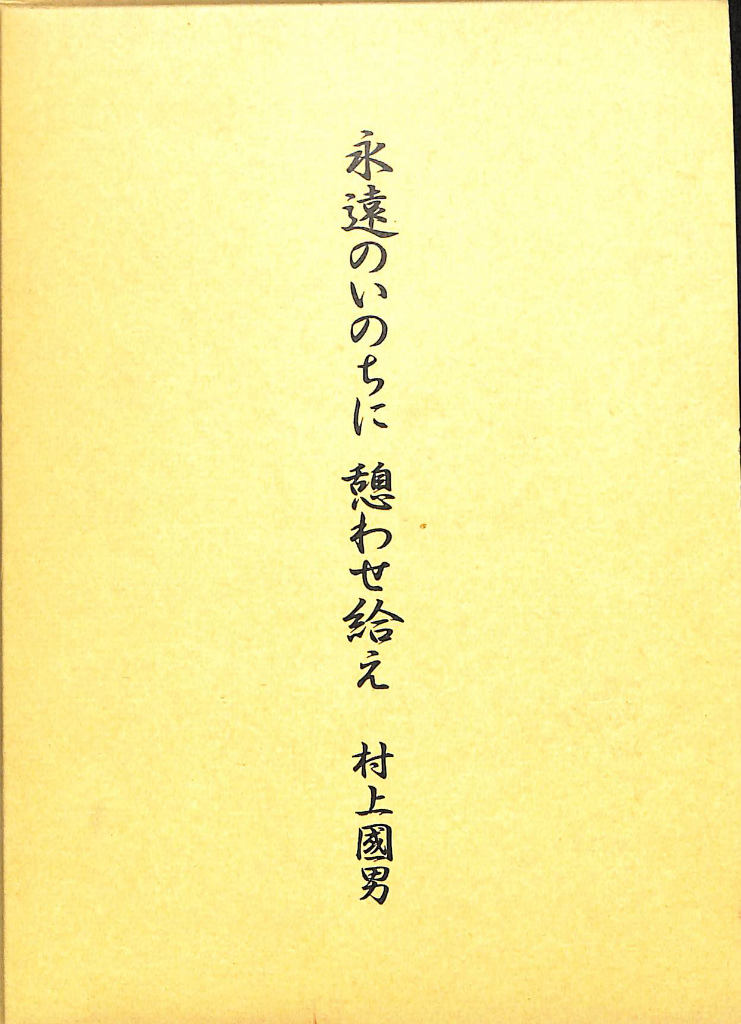 永遠のいのちに 憩わせ給え 村上國男